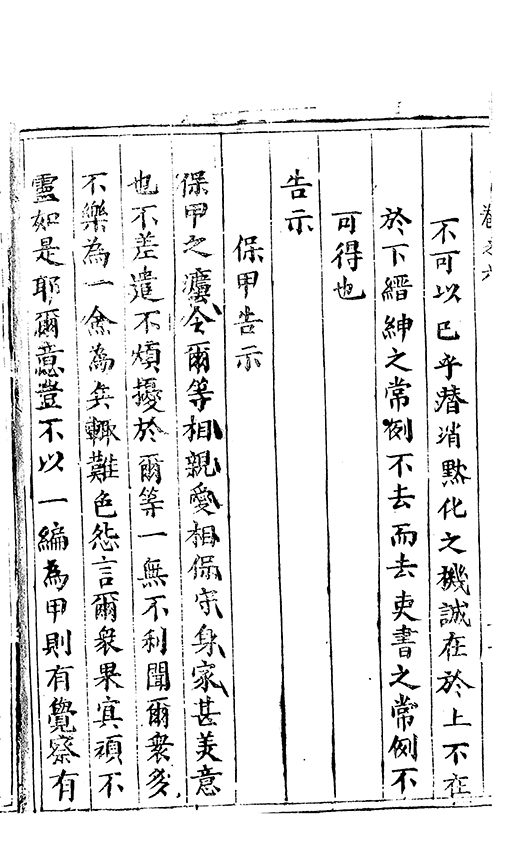 卷之六
不可以已乎潛消黙化之機誠在於上不在
於下縉紳之常例不去而去吏書之常例不
可得也
告示
保甲告示
保甲之灋令爾等相親愛相保守身家甚美意
也不差遣不煩擾於爾等一無不利聞爾衆多
不樂為一僉為兵輙難色怨言爾衆果冥頑不
靈如是耶爾意豈不以一編為甲則有覺察有